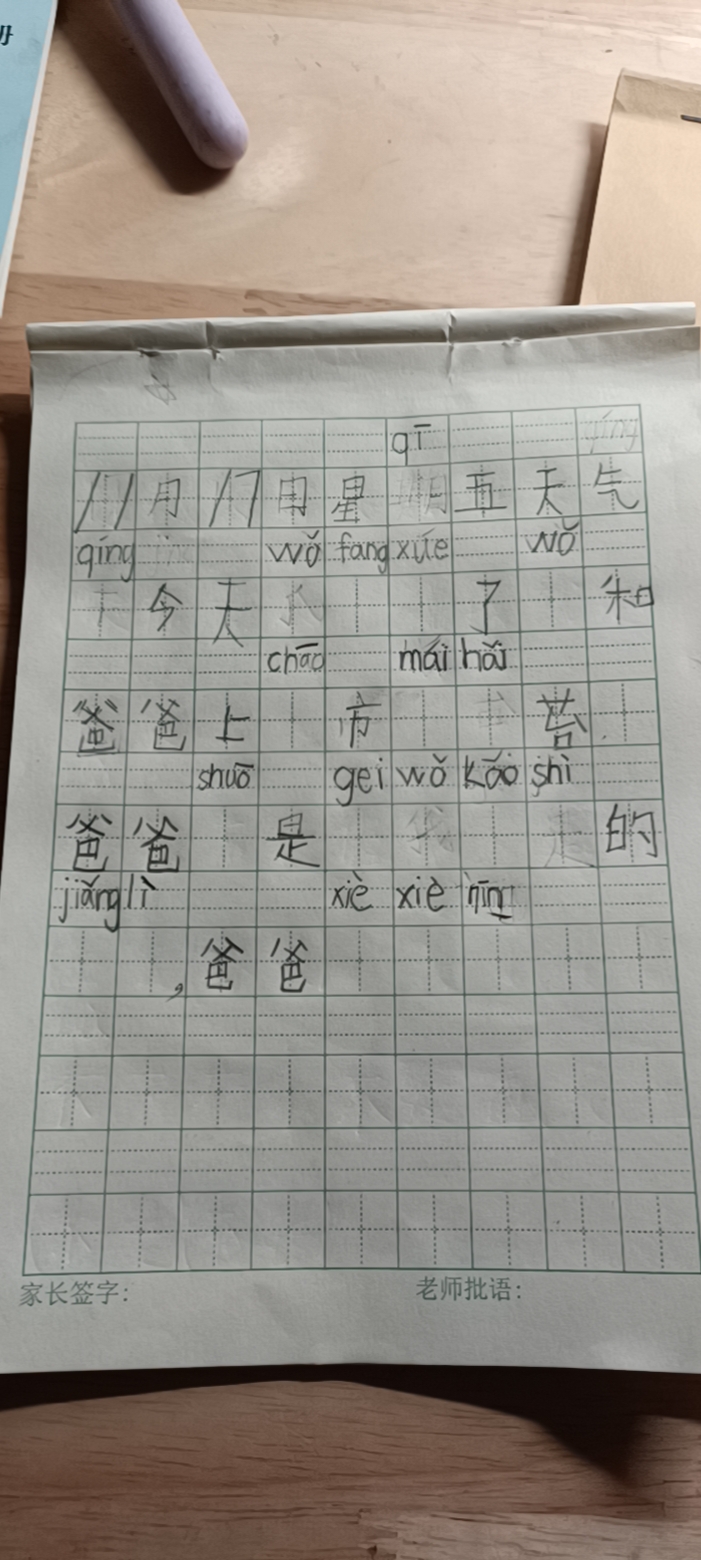 qī
11月17日星五天气
qíng wǒ fang xúe wǒ
今天了和
chāo mái hǎi
爸爸上市苔
shuō gei wǒ kǎo shì
爸爸是的
jiǎng lì xiè xiè nín
，爸爸
家长签字： 老师批语：